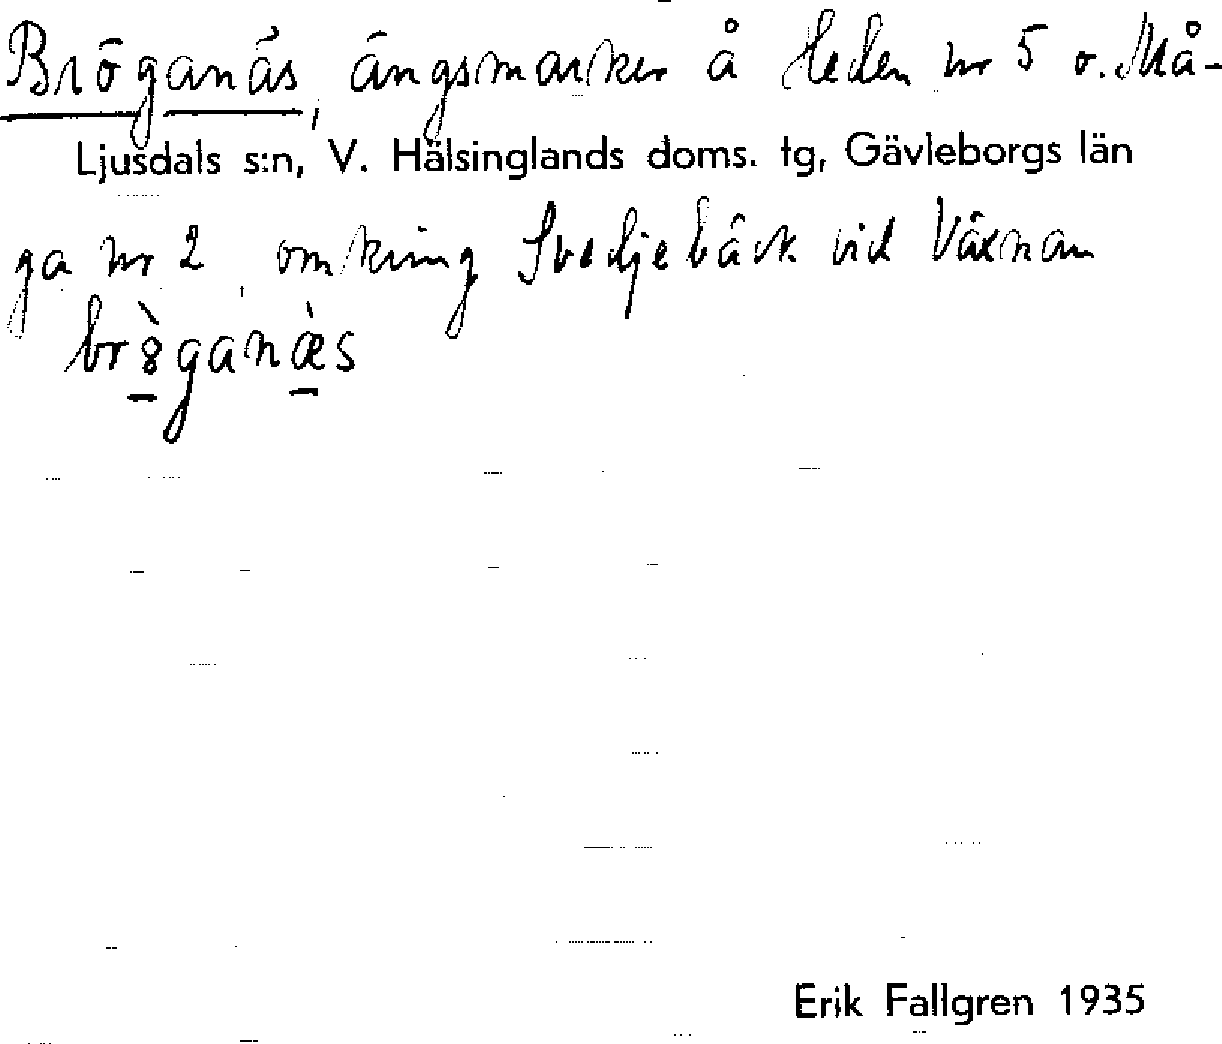 Bröganäs, ängsmarker å Heden nr 5 o. Må-
Ljusdals s:n, V. Hälsinglands doms. tg, Gävleborgs län
ga nr 2 omkring Svedjebäck vid Växnan
br8̀ganæ̀s
Erik Fallgren 1935